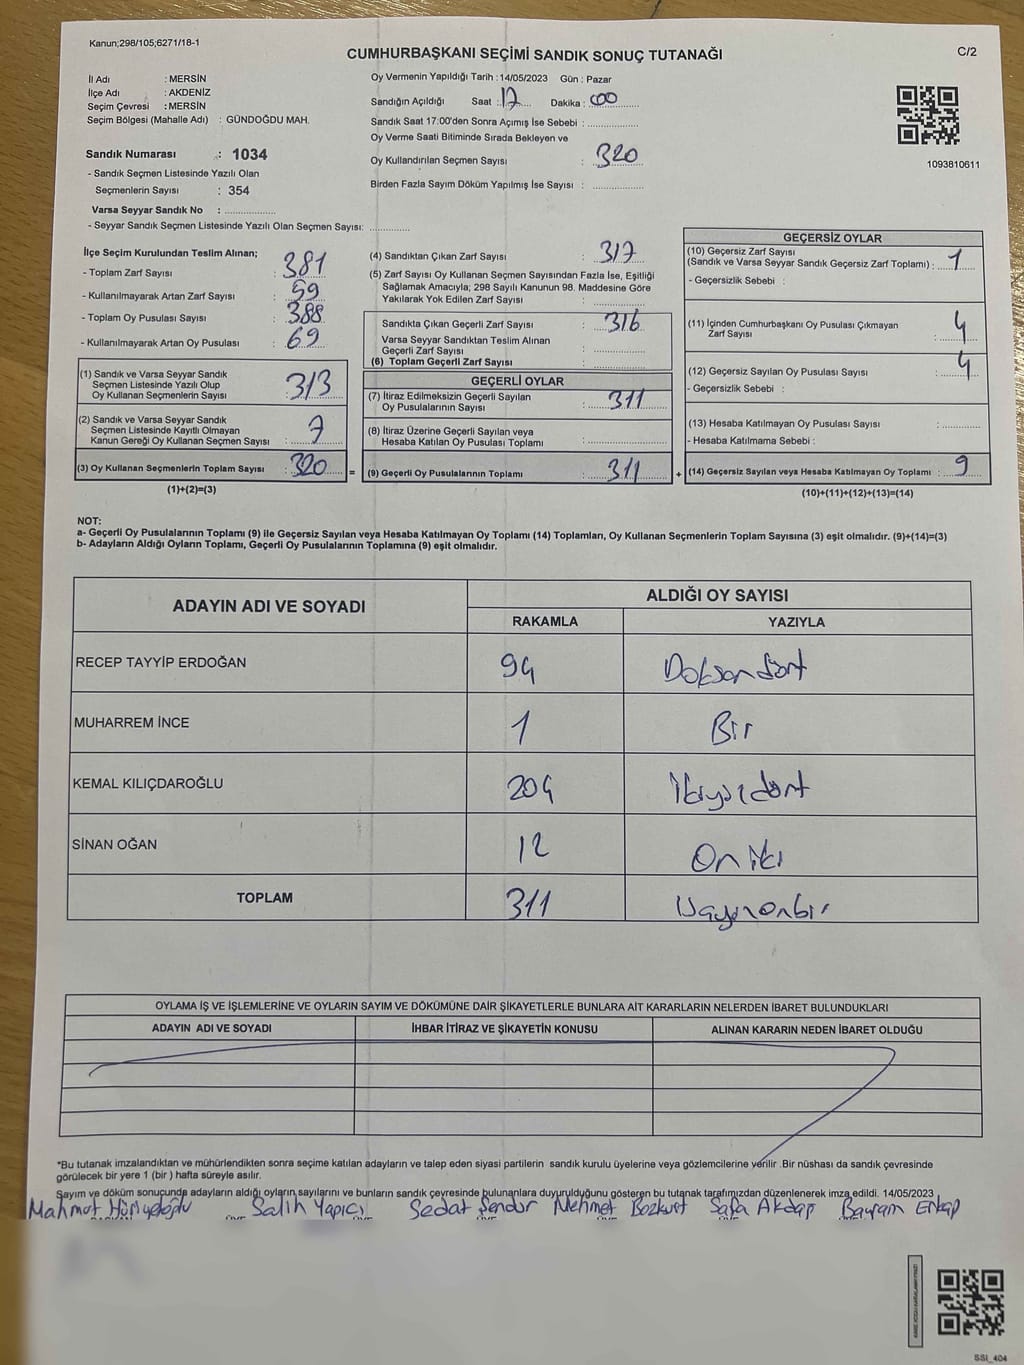 Kanun;298/105;6271/18-1
CUMHURBAŞKANI SEÇİMİ SANDIK SONUÇ TUTANAĞI
C/2
İl Adı : MERSİN
İlçe Adı : AKDENİZ
Seçim Çevresi : MERSİN
Seçim Bölgesi (Mahalle Adı) : GÜNDOĞDU MAH.
Sandık Numarası : 1034
- Sandık Seçmen Listesinde Yazılı Olan
Seçmenlerin Sayısı : 354
Varsa Seyyar Sandık No : ................
- Seyyar Sandık Seçmen Listesinde Yazılı Olan Seçmen Sayısı: .............
Oy Vermenin Yapıldığı Tarih : 14/05/2023 Gün : Pazar
Sandığın Açıldığı Saat : 17 Dakika : 00
Sandık Saat 17:00'den Sonra Açımış İse Sebebi : ................
Oy Verme Saati Bitiminde Sırada Bekleyen ve
Oy Kullandırılan Seçmen Sayısı : 320
Birden Fazla Sayım Döküm Yapılmış İse Sayısı : ................
1093810611
İlçe Seçim Kurulundan Teslim Alınan;
- Toplam Zarf Sayısı : 381
- Kullanılmayarak Artan Zarf Sayısı : 59
- Toplam Oy Pusulası Sayısı : 388
- Kullanılmayarak Artan Oy Pusulası : 69
(1) Sandık ve Varsa Seyyar Sandık
Seçmen Listesinde Yazılı Olup
Oy Kullanan Seçmenlerin Sayısı : 313
(2) Sandık ve Varsa Seyyar Sandık
Seçmen Listesinde Kayıtlı Olmayan
Kanun Gereği Oy Kullanan Seçmen Sayısı : 7
(3) Oy Kullanan Seçmenlerin Toplam Sayısı : 320 =
(1)+(2)=(3)
(4) Sandıktan Çıkan Zarf Sayısı : 317
(5) Zarf Sayısı Oy Kullanan Seçmen Sayısından Fazla İse, Eşitliği
Sağlamak Amacıyla; 298 Sayılı Kanunun 98. Maddesine Göre
Yakılarak Yok Edilen Zarf Sayısı : ................
Sandıkta Çıkan Geçerli Zarf Sayısı : 316
Varsa Seyyar Sandıktan Teslim Alınan
Geçerli Zarf Sayısı : ................
(6) Toplam Geçerli Zarf Sayısı : ................
GEÇERLİ OYLAR
(7) İtiraz Edilmeksizin Geçerli Sayılan
Oy Pusulalarının Sayısı : 311
(8) İtiraz Üzerine Geçerli Sayılan veya
Hesaba Katılan Oy Pusulası Toplamı : ................
(9) Geçerli Oy Pusulalarının Toplamı : 311 +
GEÇERSİZ OYLAR
(10) Geçersiz Zarf Sayısı
(Sandık ve Varsa Seyyar Sandık Geçersiz Zarf Toplamı) : 1
- Geçersizlik Sebebi :
(11) İçinden Cumhurbaşkanı Oy Pusulası Çıkmayan
Zarf Sayısı : 4
(12) Geçersiz Sayılan Oy Pusulası Sayısı : 4
- Geçersizlik Sebebi :
(13) Hesaba Katılmayan Oy Pusulası Sayısı : ................
- Hesaba Katılmama Sebebi :
(14) Geçersiz Sayılan veya Hesaba Katılmayan Oy Toplamı : 9
(10)+(11)+(12)+(13)=(14)
NOT:
a- Geçerli Oy Pusulalarının Toplamı (9) ile Geçersiz Sayılan veya Hesaba Katılmayan Oy Toplamı (14) Toplamları, Oy Kullanan Seçmenlerin Toplam Sayısına (3) eşit olmalıdır. (9)+(14)=(3)
b- Adayların Aldığı Oyların Toplamı, Geçerli Oy Pusulalarının Toplamına (9) eşit olmalıdır.
ADAYIN ADI VE SOYADI ALDIĞI OY SAYISI
RAKAMLA YAZIYLA
RECEP TAYYİP ERDOĞAN 94 Doksandört
MUHARREM İNCE 1 Bir
KEMAL KILIÇDAROĞLU 204 İkiyüzdört
SİNAN OĞAN 12 Oniki
TOPLAM 311 Üçyüzonbir
OYLAMA İŞ VE İŞLEMLERİNE VE OYLARIN SAYIM VE DÖKÜMÜNE DAİR ŞİKAYETLERLE BUNLARA AİT KARARLARIN NELERDEN İBARET BULUNDUKLARI
ADAYIN ADI VE SOYADI İHBAR İTİRAZ VE ŞİKAYETİN KONUSU ALINAN KARARIN NEDEN İBARET OLDUĞU
*Bu tutanak imzalandıktan ve mühürlendikten sonra seçime katılan adayların ve talep eden siyasi partilerin sandık kurulu üyelerine veya gözlemcilerine verilir .Bir nüshası da sandık çevresinde
görülecek bir yere 1 (bir ) hafta süreyle asılır.
Sayım ve döküm sonucunda adayların aldığı oyların sayılarını ve bunların sandık çevresinde bulunanlara duyurulduğunu gösteren bu tutanak tarafımızdan düzenlenerek imza edildi. 14/05/2023
Mahmut Salih Yapıcı Sedat Şendur Mehmet Bozkurt Safa Akdap Bayram Erkap
SSI_404